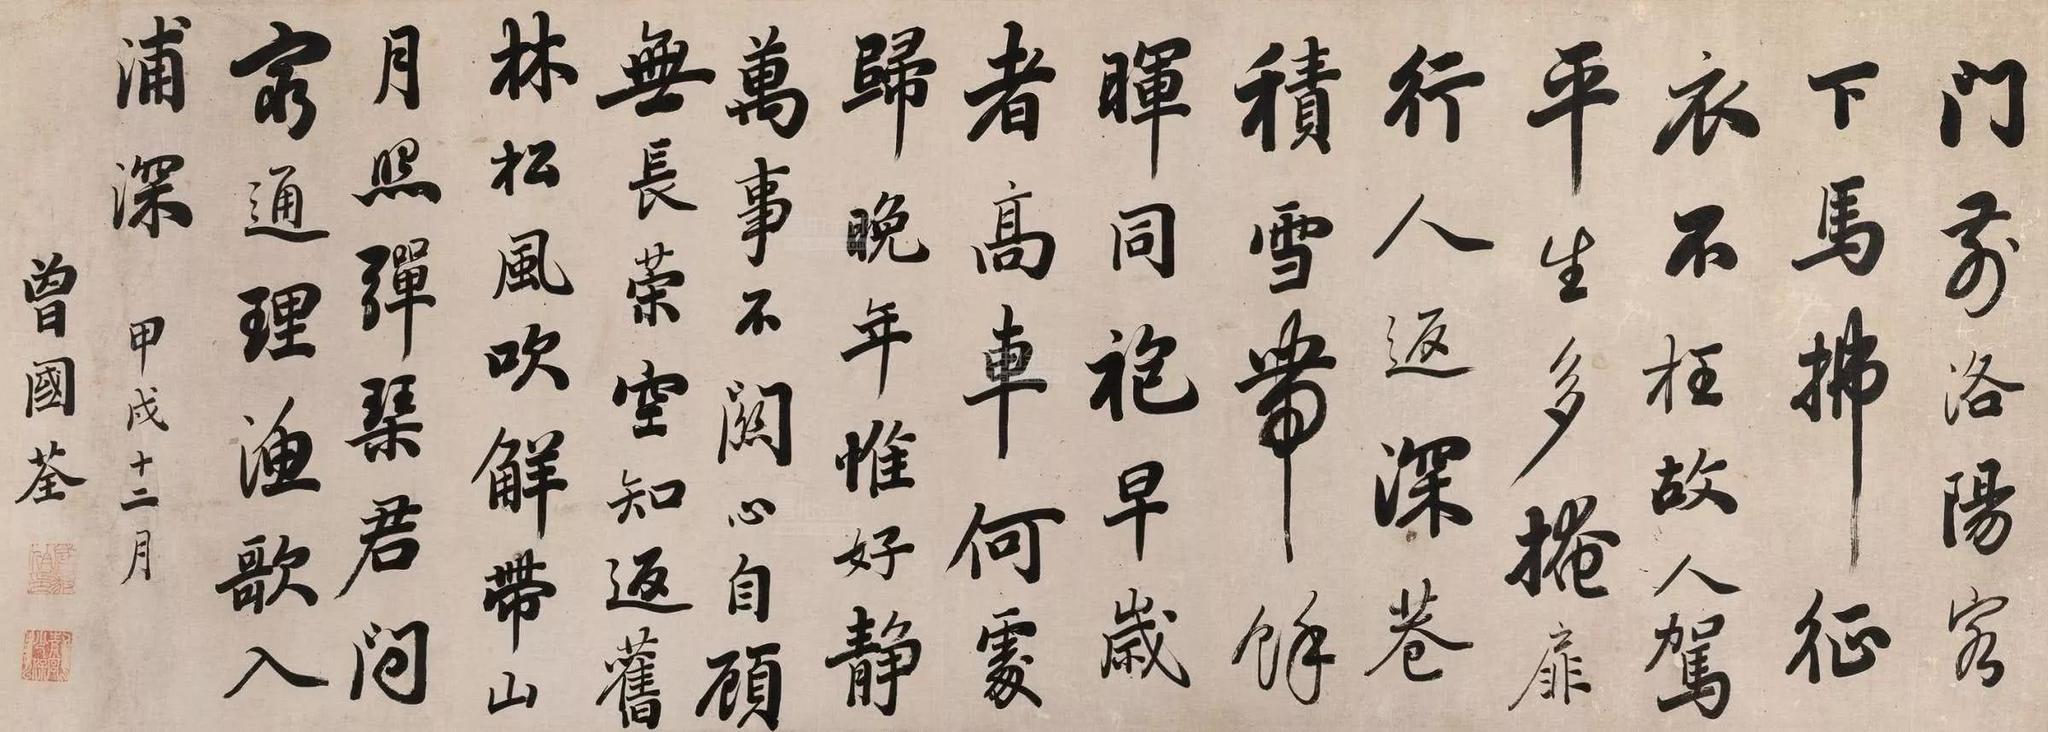 門前洛陽客
下馬拂征
衣不枉故人駕
平生多掩扉
行人返深巷
積雪帶餘
暉同袍早歲
者高車何處
歸晚年惟好靜
萬事不關心自顧
無長策空知返舊
林松風吹解帶山
月照彈琴君問
窮通理漁歌入
浦深
甲戌十二月
曾國荃